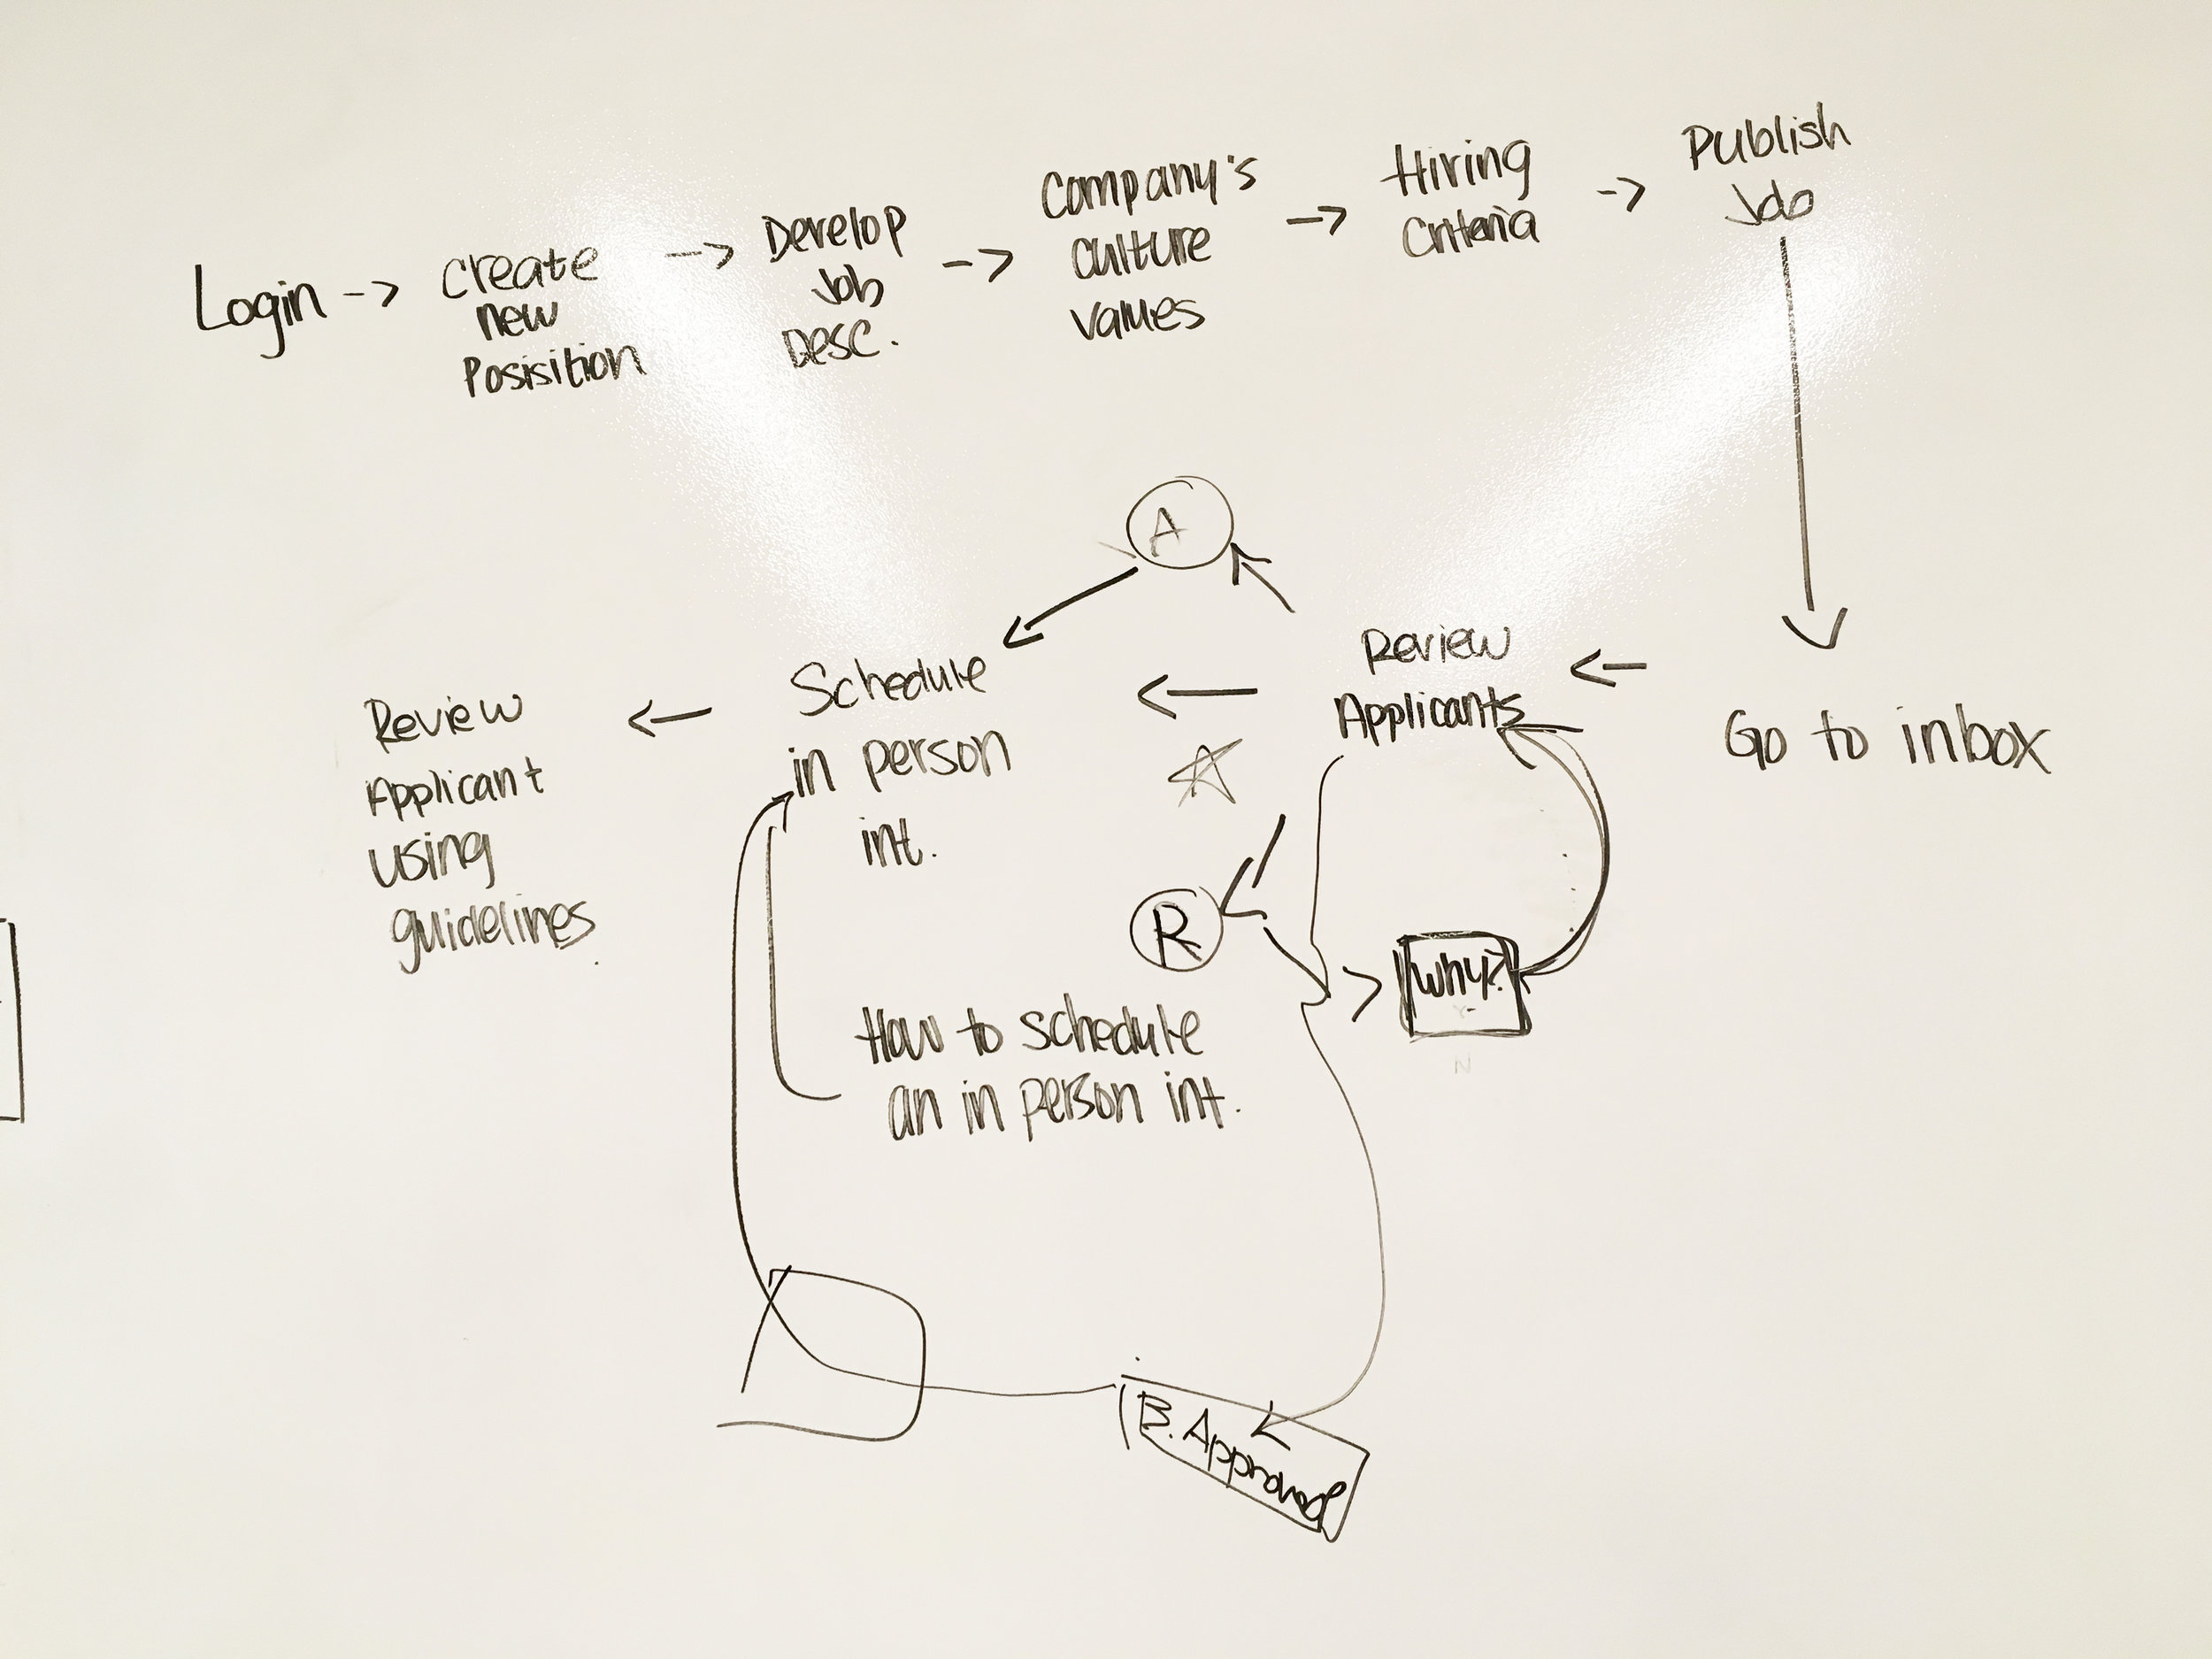 Login -> create
new
Posisition
-> Develop
Job
Desc.
-> Company's
culture
values
-> Hiring
Criteria
-> Publish
Job
A
Review
Applicants
<-
Go to inbox
Schedule
in person
int.
<-
Review
Applicant
using
guidelines
<-
R
why?
N
How to schedule
an in person int.
B. Approval